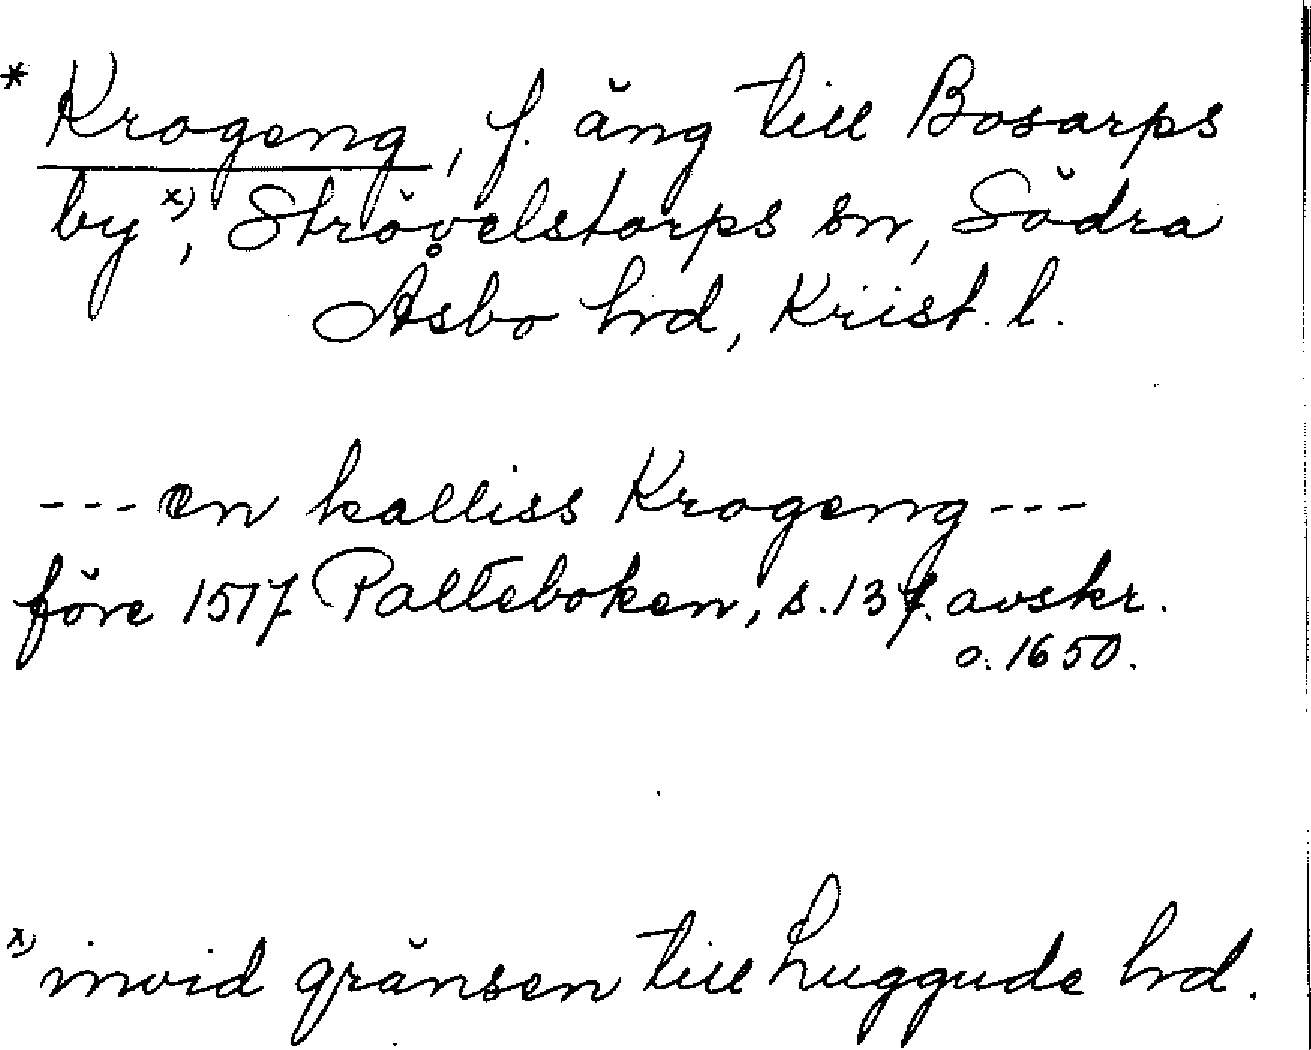 * Krogeng, f. äng till Bosarps
by x), Strövelstorps sn, Södra
Åsbo hd, Krist. l.
--- en kalliss Krogeng ---
före 1517 Palteboken, s. 137. avskr.
o. 1650.
x) invid gränsen till Luggude hd.